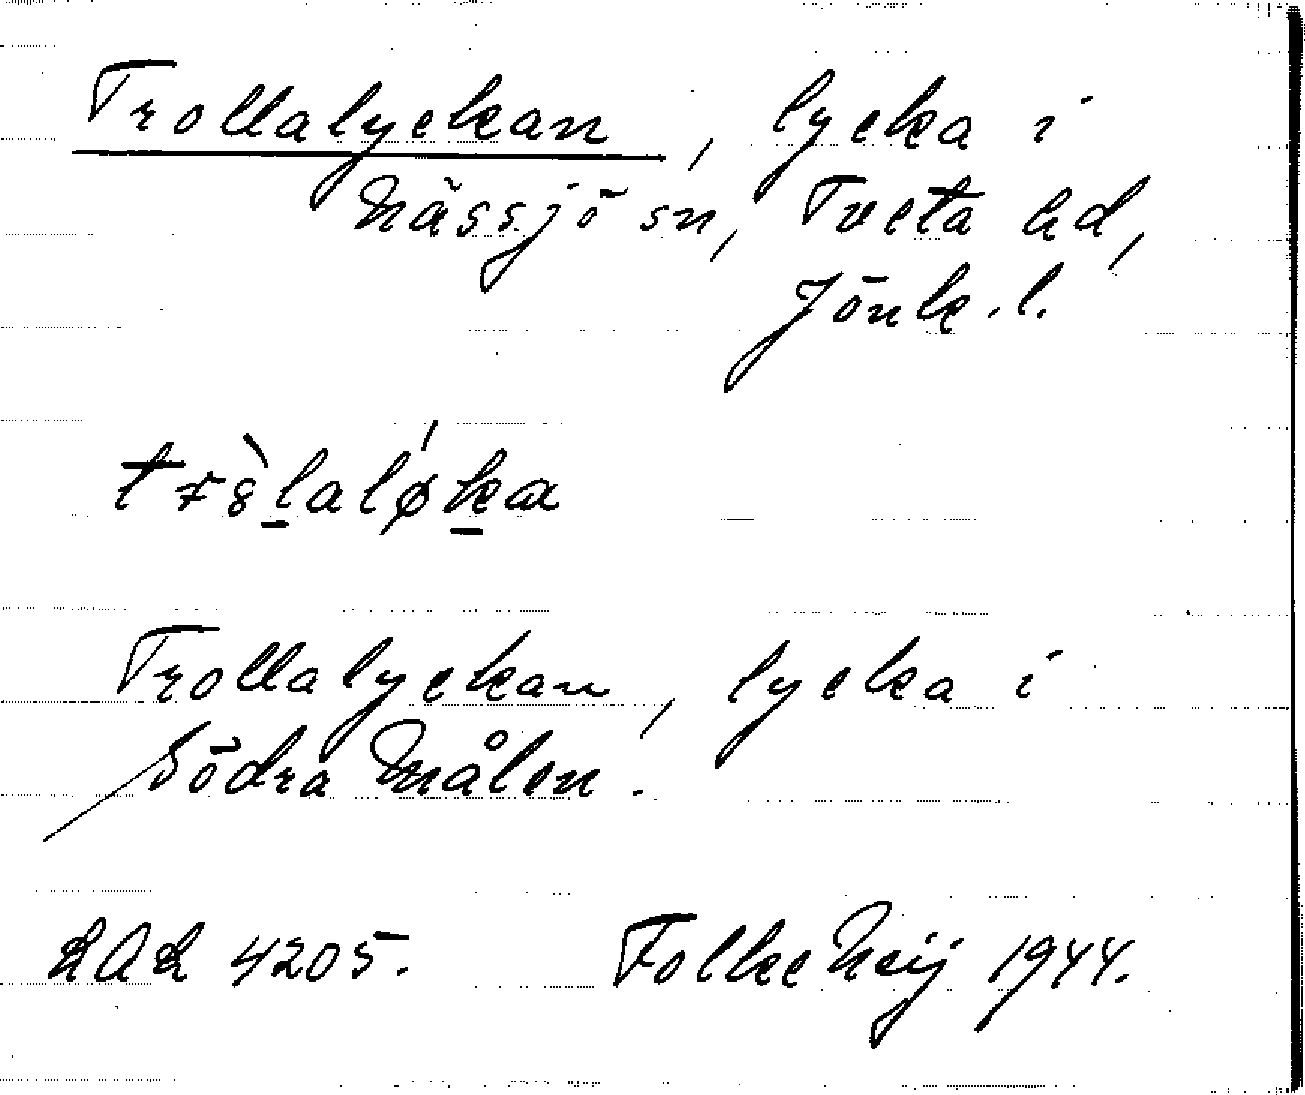 Trollalyckan, lycka i
Nässjö sn, Tveta hd,
Jönk.l.
tròlaløka
Trollalyckan, lycka i
Södra Målen.
LAL 4205. Folke Neij 1944.